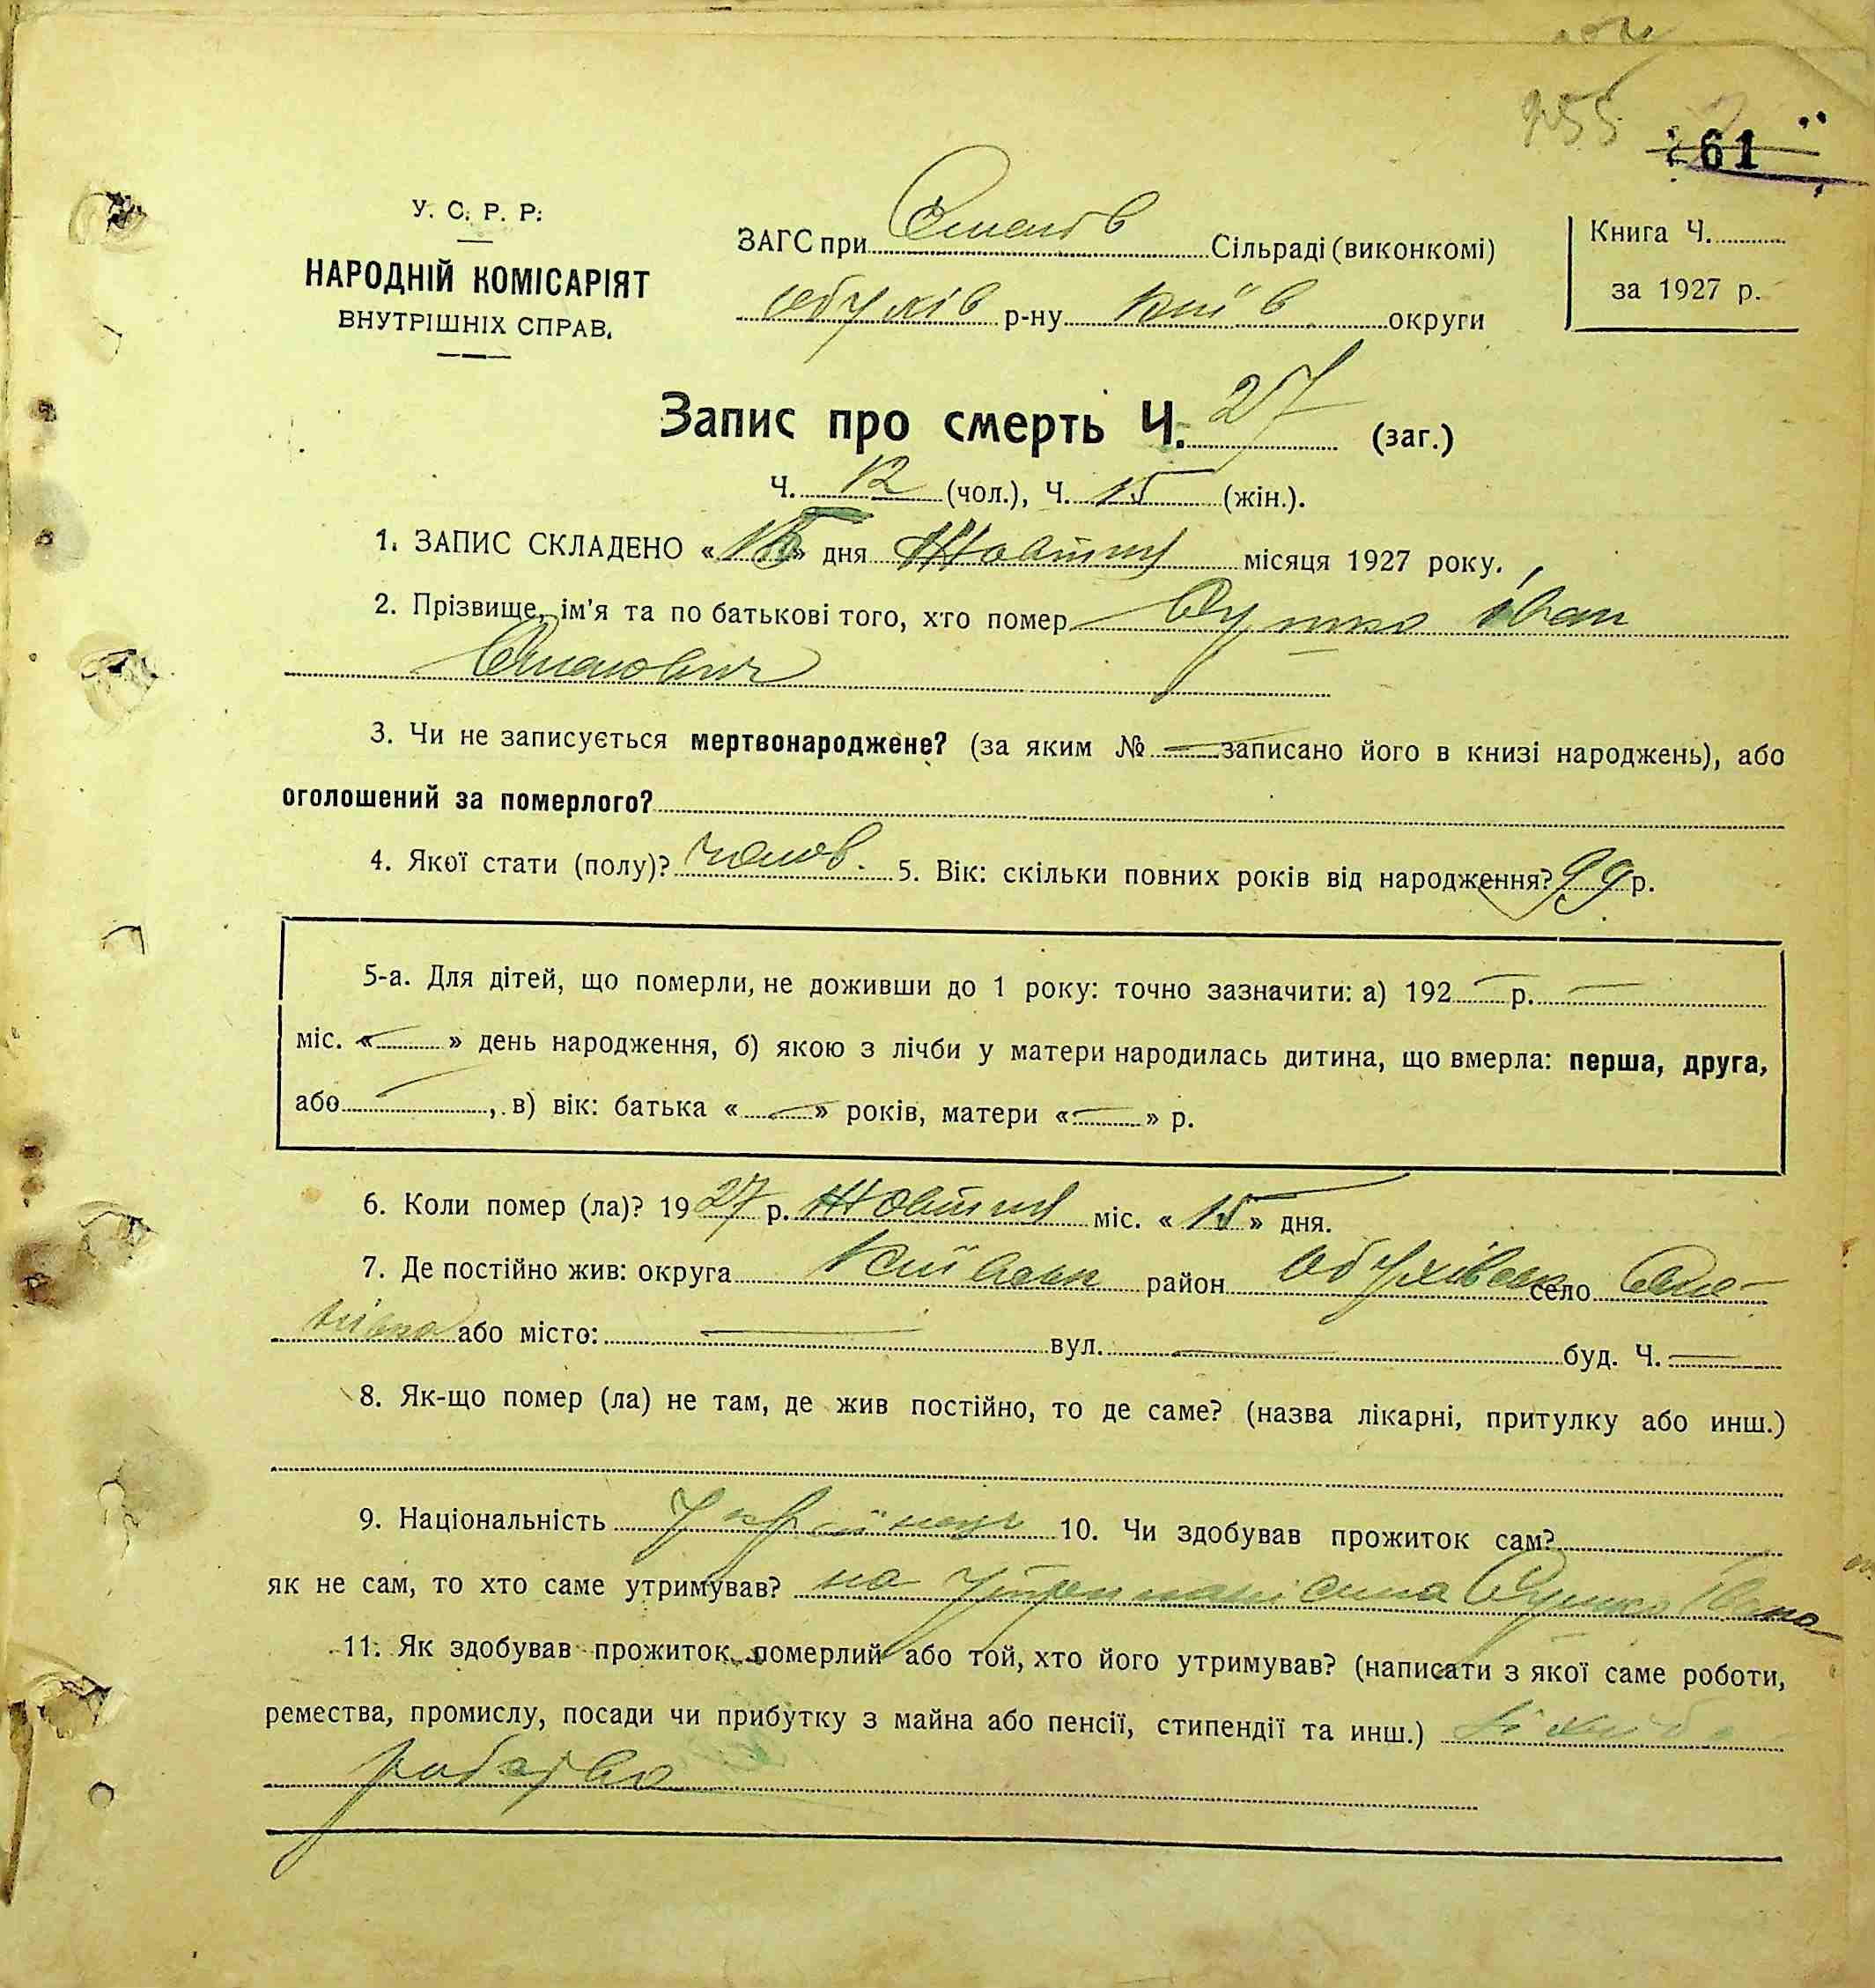 955
61
У. С. Р. Р.
НАРОДНІЙ КОМІСАРІЯТ
ВНУТРІШНІХ СПРАВ.
ЗАГС при Сільраді (виконкомі)
Обухів р-ну Київ округи
Книга Ч.
за 1927 р.
Запис про смерть Ч. 27 (заг.)
Ч. 12 (чол.), Ч. 15 (жін.).
1. ЗАПИС СКЛАДЕНО « » дня Жовтня місяця 1927 року.
2. Прізвище, ім'я та по батькові того, хто помер Сушко Іван
3. Чи не записується мертвонароджене? (за яким № — записано його в книзі народжень), або
оголошений за померлого?
4. Якої стати (полу)? чолов. 5. Вік: скільки повних років від народження? 99 р.
5-а. Для дітей, що померли, не доживши до 1 року: точно зазначити: а) 192 — р. —
міс. « — » день народження, б) якою з лічби у матери народилась дитина, що вмерла: перша, друга,
або —, в) вік: батька « — » років, матери « — » р.
6. Коли помер (ла)? 1927 р. Жовтня міс. « 15 » дня.
7. Де постійно жив: округа Київськ район Обухівськ село
або місто: — вул. — буд. Ч. —
8. Як-що помер (ла) не там, де жив постійно, то де саме? (назва лікарні, притулку або инш.)
9. Національність Українець 10. Чи здобував прожиток сам?
як не сам, то хто саме утримував? на утриманні сина Сушко Івана
11. Як здобував прожиток померлий або той, хто його утримував? (написати з якої саме роботи,
ремества, промислу, посади чи прибутку з майна або пенсії, стипендії та инш.) хлібо
робство